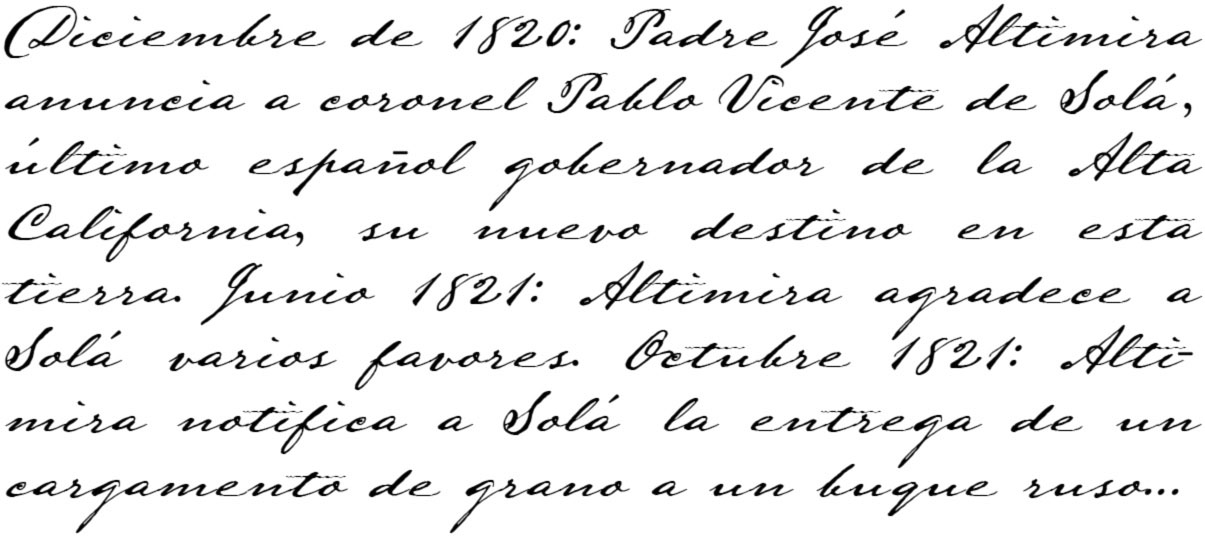 Diciembre de 1820: Padre José Altimira
anuncia a coronel Pablo Vicente de Solá,
último español gobernador de la Alta
California, su nuevo destino en esta
tierra. Junio 1821: Altimira agradece a
Solá varios favores. Octubre 1821: Alti-
mira notifica a Solá la entrega de un
cargamento de grano a un buque ruso...